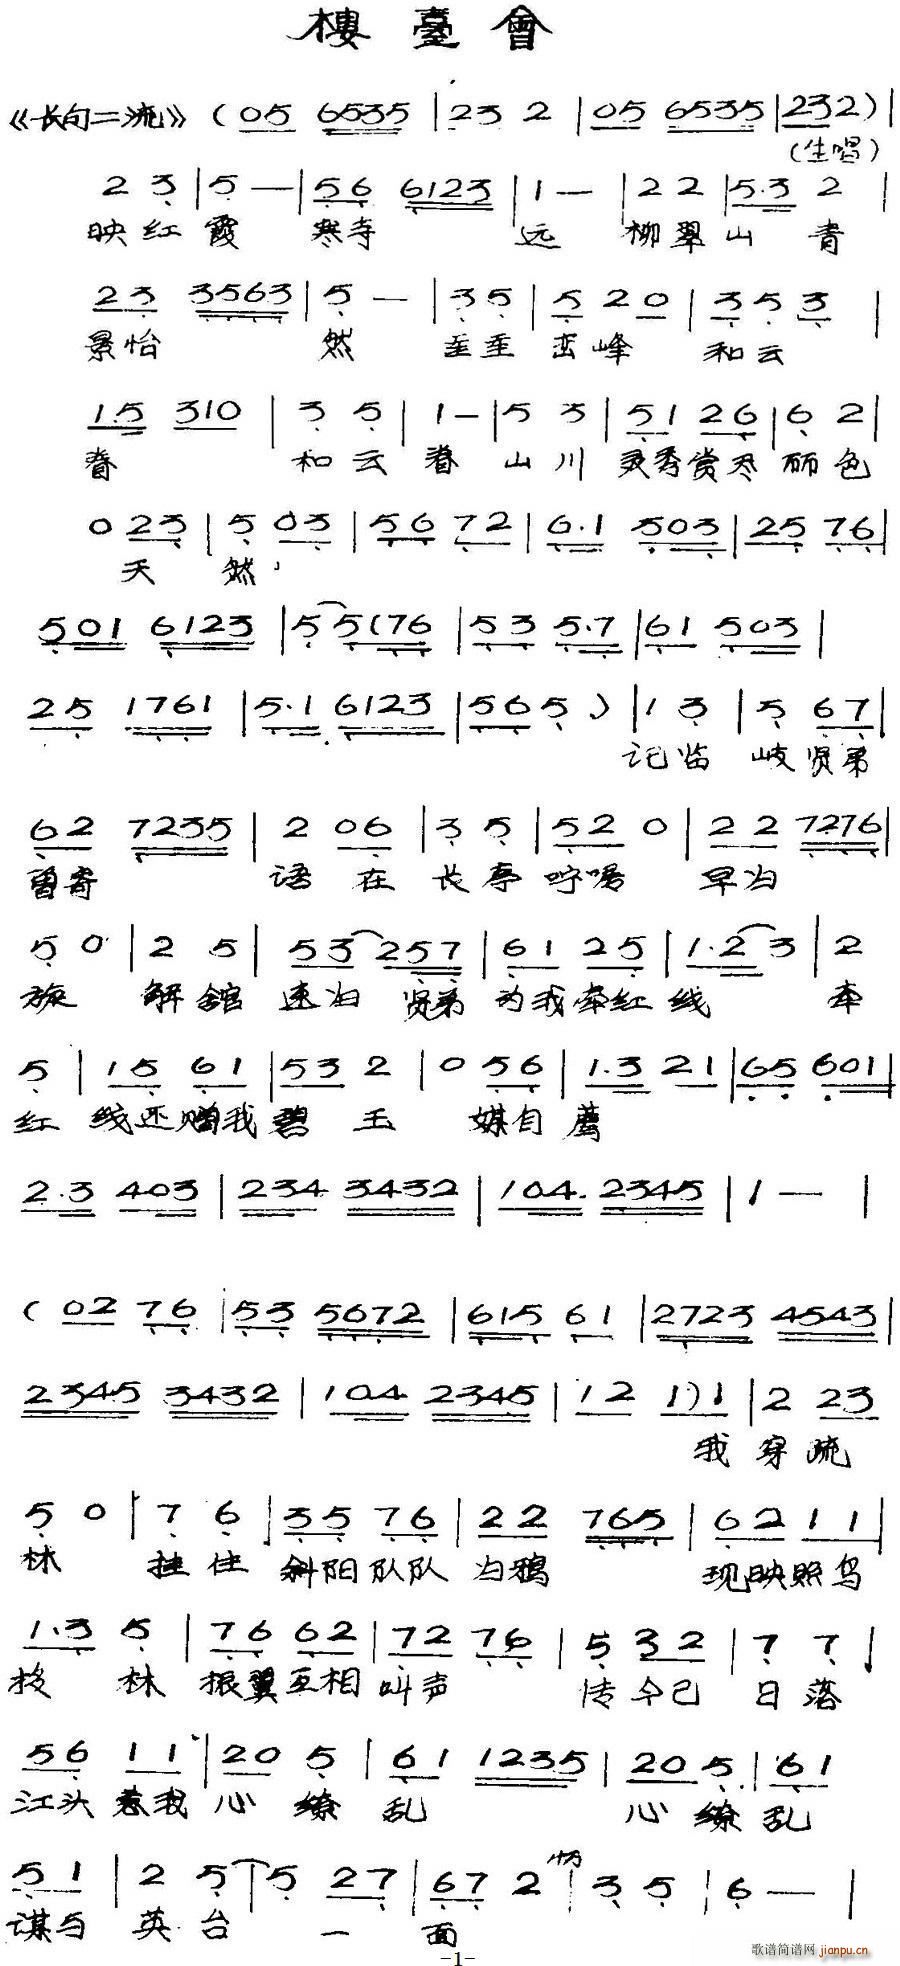 樓臺會
《长句二流》 ( 05 6535 | 23 2 | 05 6535 | 232 ) |
(生唱)
2 3 | 5 — | 56 6123 | 1 — | 2 2 | 5·3 2 |
映红霞 寒寺 远 柳翠山 青
23 3563 | 5 — | 3 5 | 5 20 | 3 5 3 |
景怡 然 峦峰 和云
1 5 310 | 3 5 | 1 — | 5 3 | 51 26 | 6 2 |
眷 和云眷 山川 灵秀赏尽 丽色
0 23 | 5 03 | 56 72 | 6·1 503 | 25 76 |
天 然
501 6123 | 5 5(76 | 53 5·7 | 61 503 |
25 1761 | 5·1 6123 | 565 ) | 1 3 | 5 67 |
记临 岐贤弟
62 7235 | 2 06 | 3 5 | 52 0 | 2 2 7276 |
曾寄 语 在 长亭 咛嘱 早归
5 0 | 2 5 | 53 257 | 61 25 | 1·2 3 | 2
旋 解馆 速归 贤弟 为我牵红线 牵
5 | 15 61 | 53 2 | 0 56 | 1·3 21 | 65 601 |
红 线还赠我碧玉 媒自荐
2·3 403 | 234 3432 | 104 2345 | 1 — |
( 02 76 | 53 5672 | 615 61 | 2723 4543 |
2345 3432 | 104 2345 | 12 1)1 | 2 23
我 穿疏
5 0 | 7 6 | 35 76 | 22 765 | 62 11 |
林 挂住 斜阳队队 归鸦 现映照鸟
1·3 5 | 76 62 | 72 76 | 5 32 | 7 7 |
投 林 振翼互相 叫声 传今已 日落
56 11 | 20 5 | 61 1235 | 20 5 | 61
江头惹我 心 缭 乱 心 缭乱
51 | 2 5 | 5 27 | 67 2 | 3 5 | 6 — |
谋与 英台 一 面
-1-
歌谱简谱网 jianpu.cn